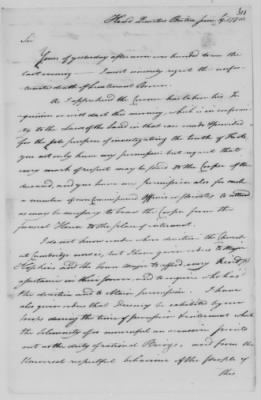 Head Quarters Boston June 19th 1778
Sir
Yours of yesterday afternoon was handed to me the
last evening — I most sincerely regret the unfor-
tunate death of Lieutenant Brown.
As I apprehend the Coroner has taken his In-
quisition or will do it this morning, which is in conformi-
ty to the Laws of the Land is that can made
for the sole purpose of investigating the truth of Facts
you not only have my permission but request that
every mark of respect may be paid to the Corpse of the
deceased, and you have my permission also for such
a number of non Commissioned Officers or Privates to attend
as may be necessary to bear the Corpse from the
funeral House to the place of interment.
I do not know under whose direction the
at Cambridge is, but I have given orders to Major
Hopkins and the Town Major to afford every
assistance in their power, and to enquire who has
the direction and to obtain permission. I have
also given orders that Decency be exhibited by our
troops during the time of procession & interment which
the solemnity of so mournful an occasion points
out as the duty of rational Beings, and from the
Universal respectful behaviour of the people of
this